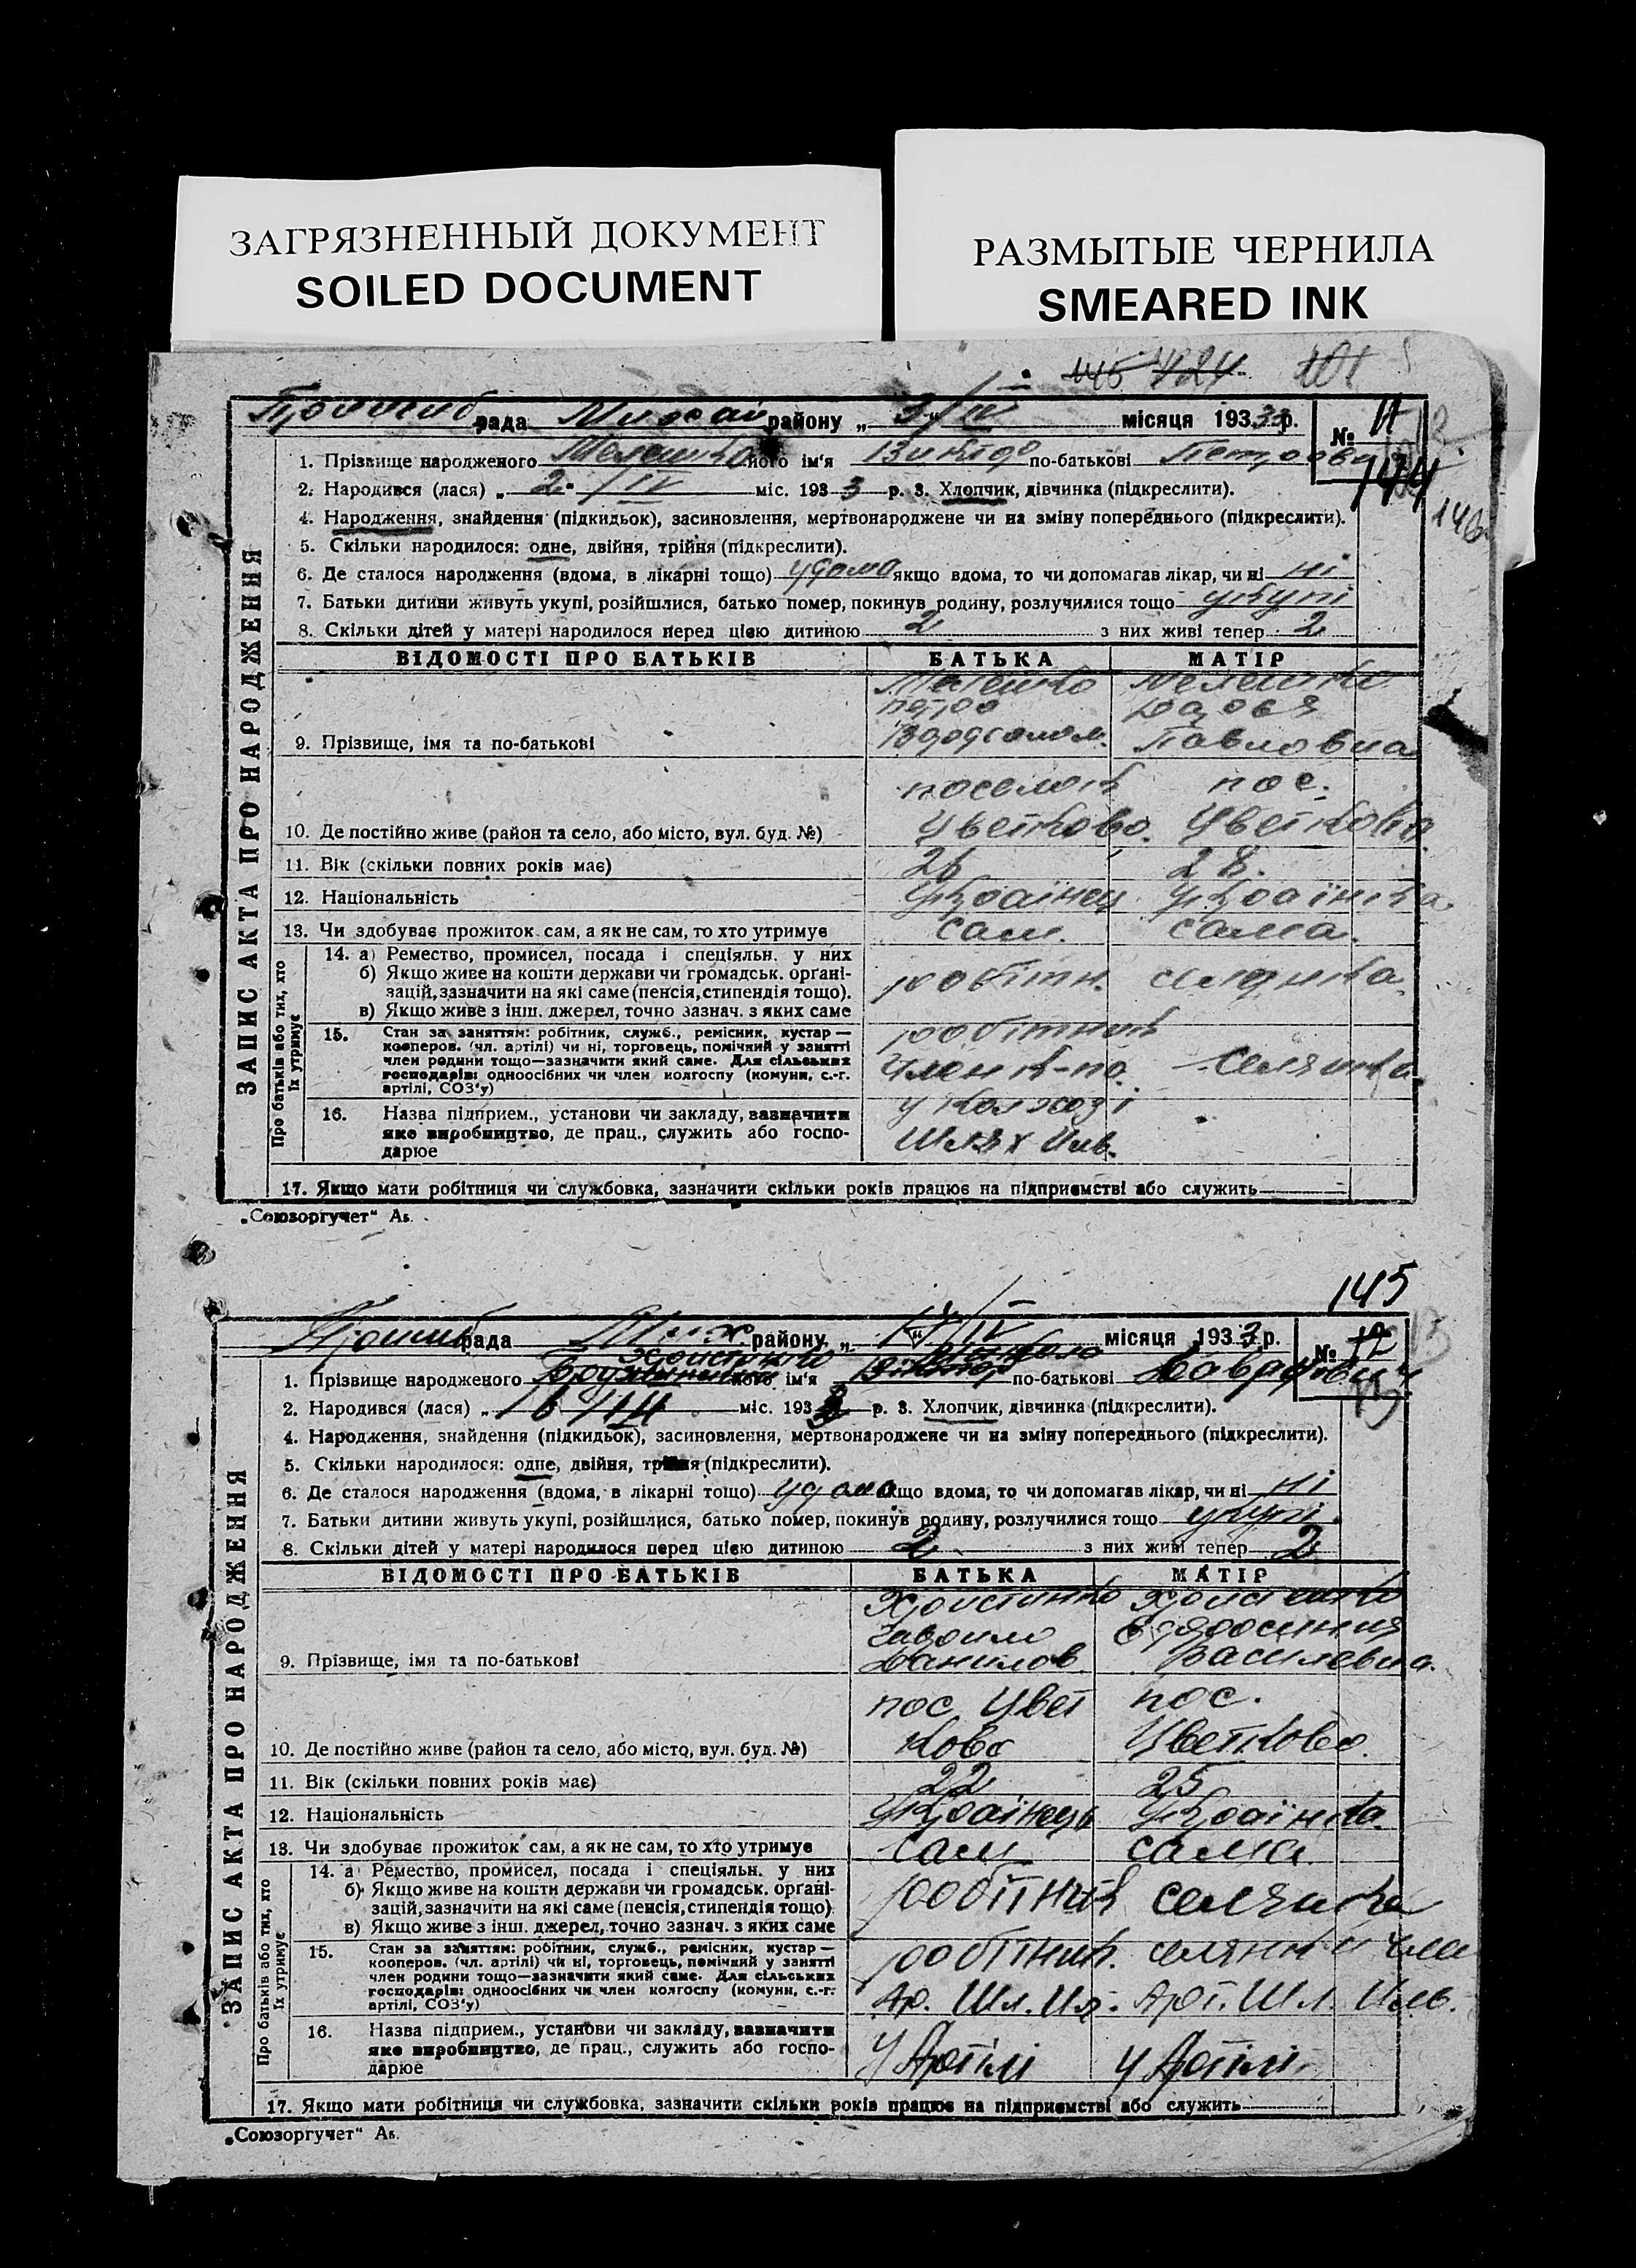 ЗАГРЯЗНЕННЫЙ ДОКУМЕНТ
SOILED DOCUMENT
РАЗМЫТЫЕ ЧЕРНИЛА
SMEARED INK
145 124 101
рада Михай району „ 3 “ IV місяця 1933 р. № 11
144
146
ЗАПИС АКТА ПРО НАРОДЖЕННЯ
1. Прізвище народженого Мелешко його ім'я Віктор по-батькові Петрович
2. Народився (лася) „ 2 “ IV міс. 193 3 р. 3. Хлопчик, дівчинка (підкреслити).
4. Народження, знайдення (підкидьок), засиновлення, мертвонароджене чи на зміну попереднього (підкреслити).
5. Скільки народилося: одне, двійня, трійня (підкреслити).
6. Де сталося народження (вдома, в лікарні тощо) удома якщо вдома, то чи допомагав лікар, чи ні ні
7. Батьки дитини живуть укупі, розійшлися, батько помер, покинув родину, розлучилися тощо укупі
8. Скільки дітей у матері народилося перед цією дитиною 2 з них живі тепер 2
ВІДОМОСТІ ПРО БАТЬКІВ БАТЬКА МАТІР
Мелешко Мелешко
Петро Дарья
9. Прізвище, імя та по-батькові Павловна
поселок пос.
10. Де постійно живе (район та село, або місто, вул. буд. №) Цветково. Цветково.
11. Вік (скільки повних років має) 26 28.
12. Національність Українец Українка
13. Чи здобуває прожиток сам, а як не сам, то хто утримує сам. сама.
Про батьків або тих, хто їх утримує
14. а) Ремество, промисел, посада і спеціяльн. у них
б) Якщо живе на кошти держави чи громадськ. орґані-
зацій, зазначити на які саме (пенсія, стипендія тощо). робітн. селянка
в) Якщо живе з інш. джерел, точно зазнач. з яких саме
15. Стан за заняттям: робітник, служб., ремісник, кустар — робітник
кооперов. (чл. артілі) чи ні, торговець, помічний у занятті
член родини тощо—зазначити який саме. Для сільських член к-по. селянка
господарів: одноосібних чи член колгоспу (комуни, с.-г.
артілі, СОЗ'у)
16. Назва підприєм., установи чи закладу, зазначити у колхозі
яке виробництво, де прац., служить або госпо- Шлях Илв.
дарює
17. Якщо мати робітниця чи службовка, зазначити скільки років працює на підприємстві або служить
„Союзоргучет“ Ав.
145
рада Мих. району „ “ IV місяця 193 3 р. № 12
Християнко Микола
1. Прізвище народженого його ім'я Віктор по-батькові Гаврилович
2. Народився (лася) „ 16 міс. 193 3 р. 3. Хлопчик, дівчинка (підкреслити).
4. Народження, знайдення (підкидьок), засиновлення, мертвонароджене чи на зміну попереднього (підкреслити).
5. Скільки народилося: одне, двійня, трійня (підкреслити).
6. Де сталося народження (вдома, в лікарні тощо) удома якщо вдома, то чи допомагав лікар, чи ні ні
7. Батьки дитини живуть укупі, розійшлися, батько помер, покинув родину, розлучилися тощо укупі
8. Скільки дітей у матері народилося перед цією дитиною 2 з них живі тепер 2
ЗАПИС АКТА ПРО НАРОДЖЕННЯ
ВІДОМОСТІ ПРО БАТЬКІВ БАТЬКА МАТІР
Гаврило
9. Прізвище, імя та по-батькові Данилов Василевна.
пос Цвет пос.
10. Де постійно живе (район та село, або місто, вул. буд. №) ково Цветково.
11. Вік (скільки повних років має) 22 25
12. Національність Українець Українка.
13. Чи здобуває прожиток сам, а як не сам, то хто утримує сам сама
Про батьків або тих, хто їх утримує
14. а) Ремество, промисел, посада і спеціяльн. у них
б) Якщо живе на кошти держави чи громадськ. орґані- робітник селянка
зацій, зазначити на які саме (пенсія, стипендія тощо)
в) Якщо живе з інш. джерел, точно зазнач. з яких саме
15. Стан за заняттям: робітник, служб., ремісник, кустар — робітник. селянка член
кооперов. (чл. артілі) чи ні, торговець, помічний у занятті
член родини тощо—зазначити який саме. Для сільських
господарів: одноосібних чи член колгоспу (комуни, с.-г. Ар. Шл. Ил. Арт. Шл. Илв.
артілі, СОЗ'у)
16. Назва підприєм., установи чи закладу, зазначити
яке виробництво, де прац., служить або госпо- у Артілі у Артілі
дарює
17. Якщо мати робітниця чи службовка, зазначити скільки років працює на підприємстві або служить
„Союзоргучет“ Ав.